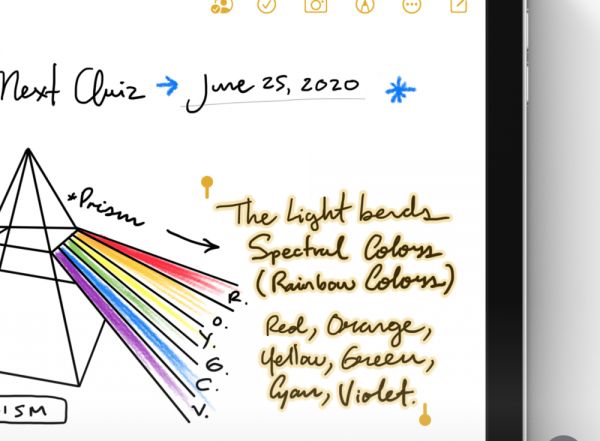 Next Quiz → June 25, 2020 *
*Prism
The Light bends
Spectral Colors
(Rainbow Colors)
Red, Orange,
Yellow, Green,
Cyan, Violet.
R.
O.
Y.
G.
C.
V.
ISM